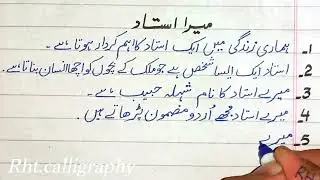 میرا استاد
1- ہماری زندگی میں ایک استاد کا اہم کردار ہوتا ہے۔
2- استاد ایک ایسا شخص ہے جو ملک کے بچوں کو اچھا انسان بناتا ہے۔
3- میرے استاد کا نام شہلہ حبیب ہے۔
4- میرے استاد مجھے اُردو مضمون پڑھاتے ہیں.
5- میرے
Rht.calligraphy